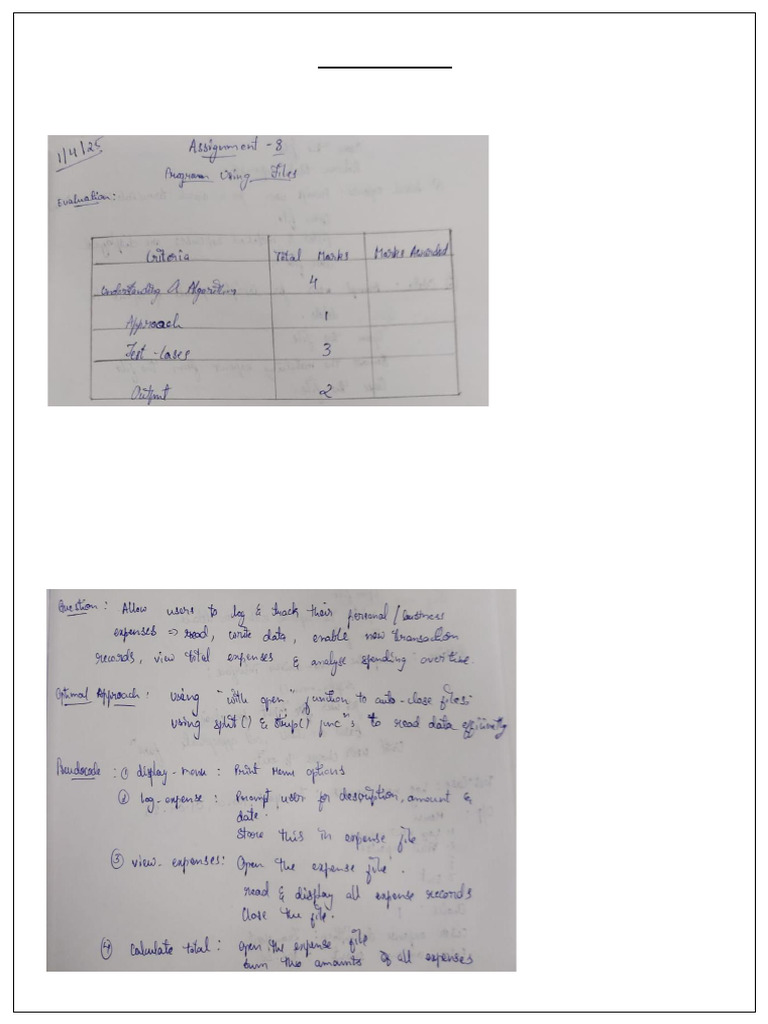 1/4/25
Assignment - 8
Program Using Files
Evaluation:
Criteria Total Marks Marks Awarded
Understanding & Algorithm 4
Approach 1
Test-Cases 3
Output 2
Question: Allow users to log & track their personal/business
expenses => read, write data, enable new transaction
records, view total expenses & analyse spending overtime.
Optimal Approach: using "with open" function to auto-close files
using split() & strip() func"s to read data efficiently
Pseudocode: ① display-menu: Print Menu options
② log-expense: Prompt user for description, amount &
date.
Store this in expense file
③ view-expenses: Open the expense file.
read & display all expense records
Close the file.
④ Calculate total: open the expense file
sum the amounts of all expenses